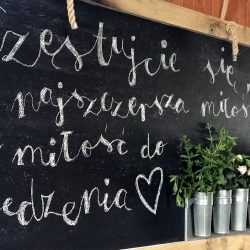 zęstujcie się
najszczersza miłoś
miłość do
edzenia ♡